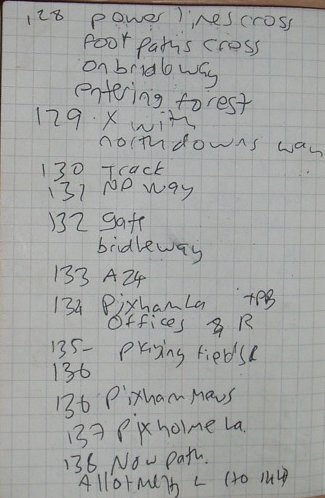 128 power lines cross
foot paths cross
on bridleway
entering forest
129 X with
north downs way
130 Track
131 ND way
132 gate
bridleway
133 A24
134 Pixham La +PB
Offices & R
135- Playing fields L
136
136 Pixham Mews
137 Pixholme La.
138 Now path.
Allotments L (to